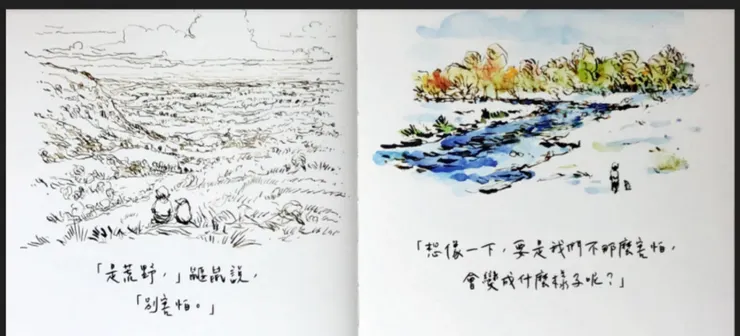 「是荒野，」鼴鼠說，
「別害怕。」
「想像一下，要是我們不那麼害怕，
會變成什麼樣子呢？」